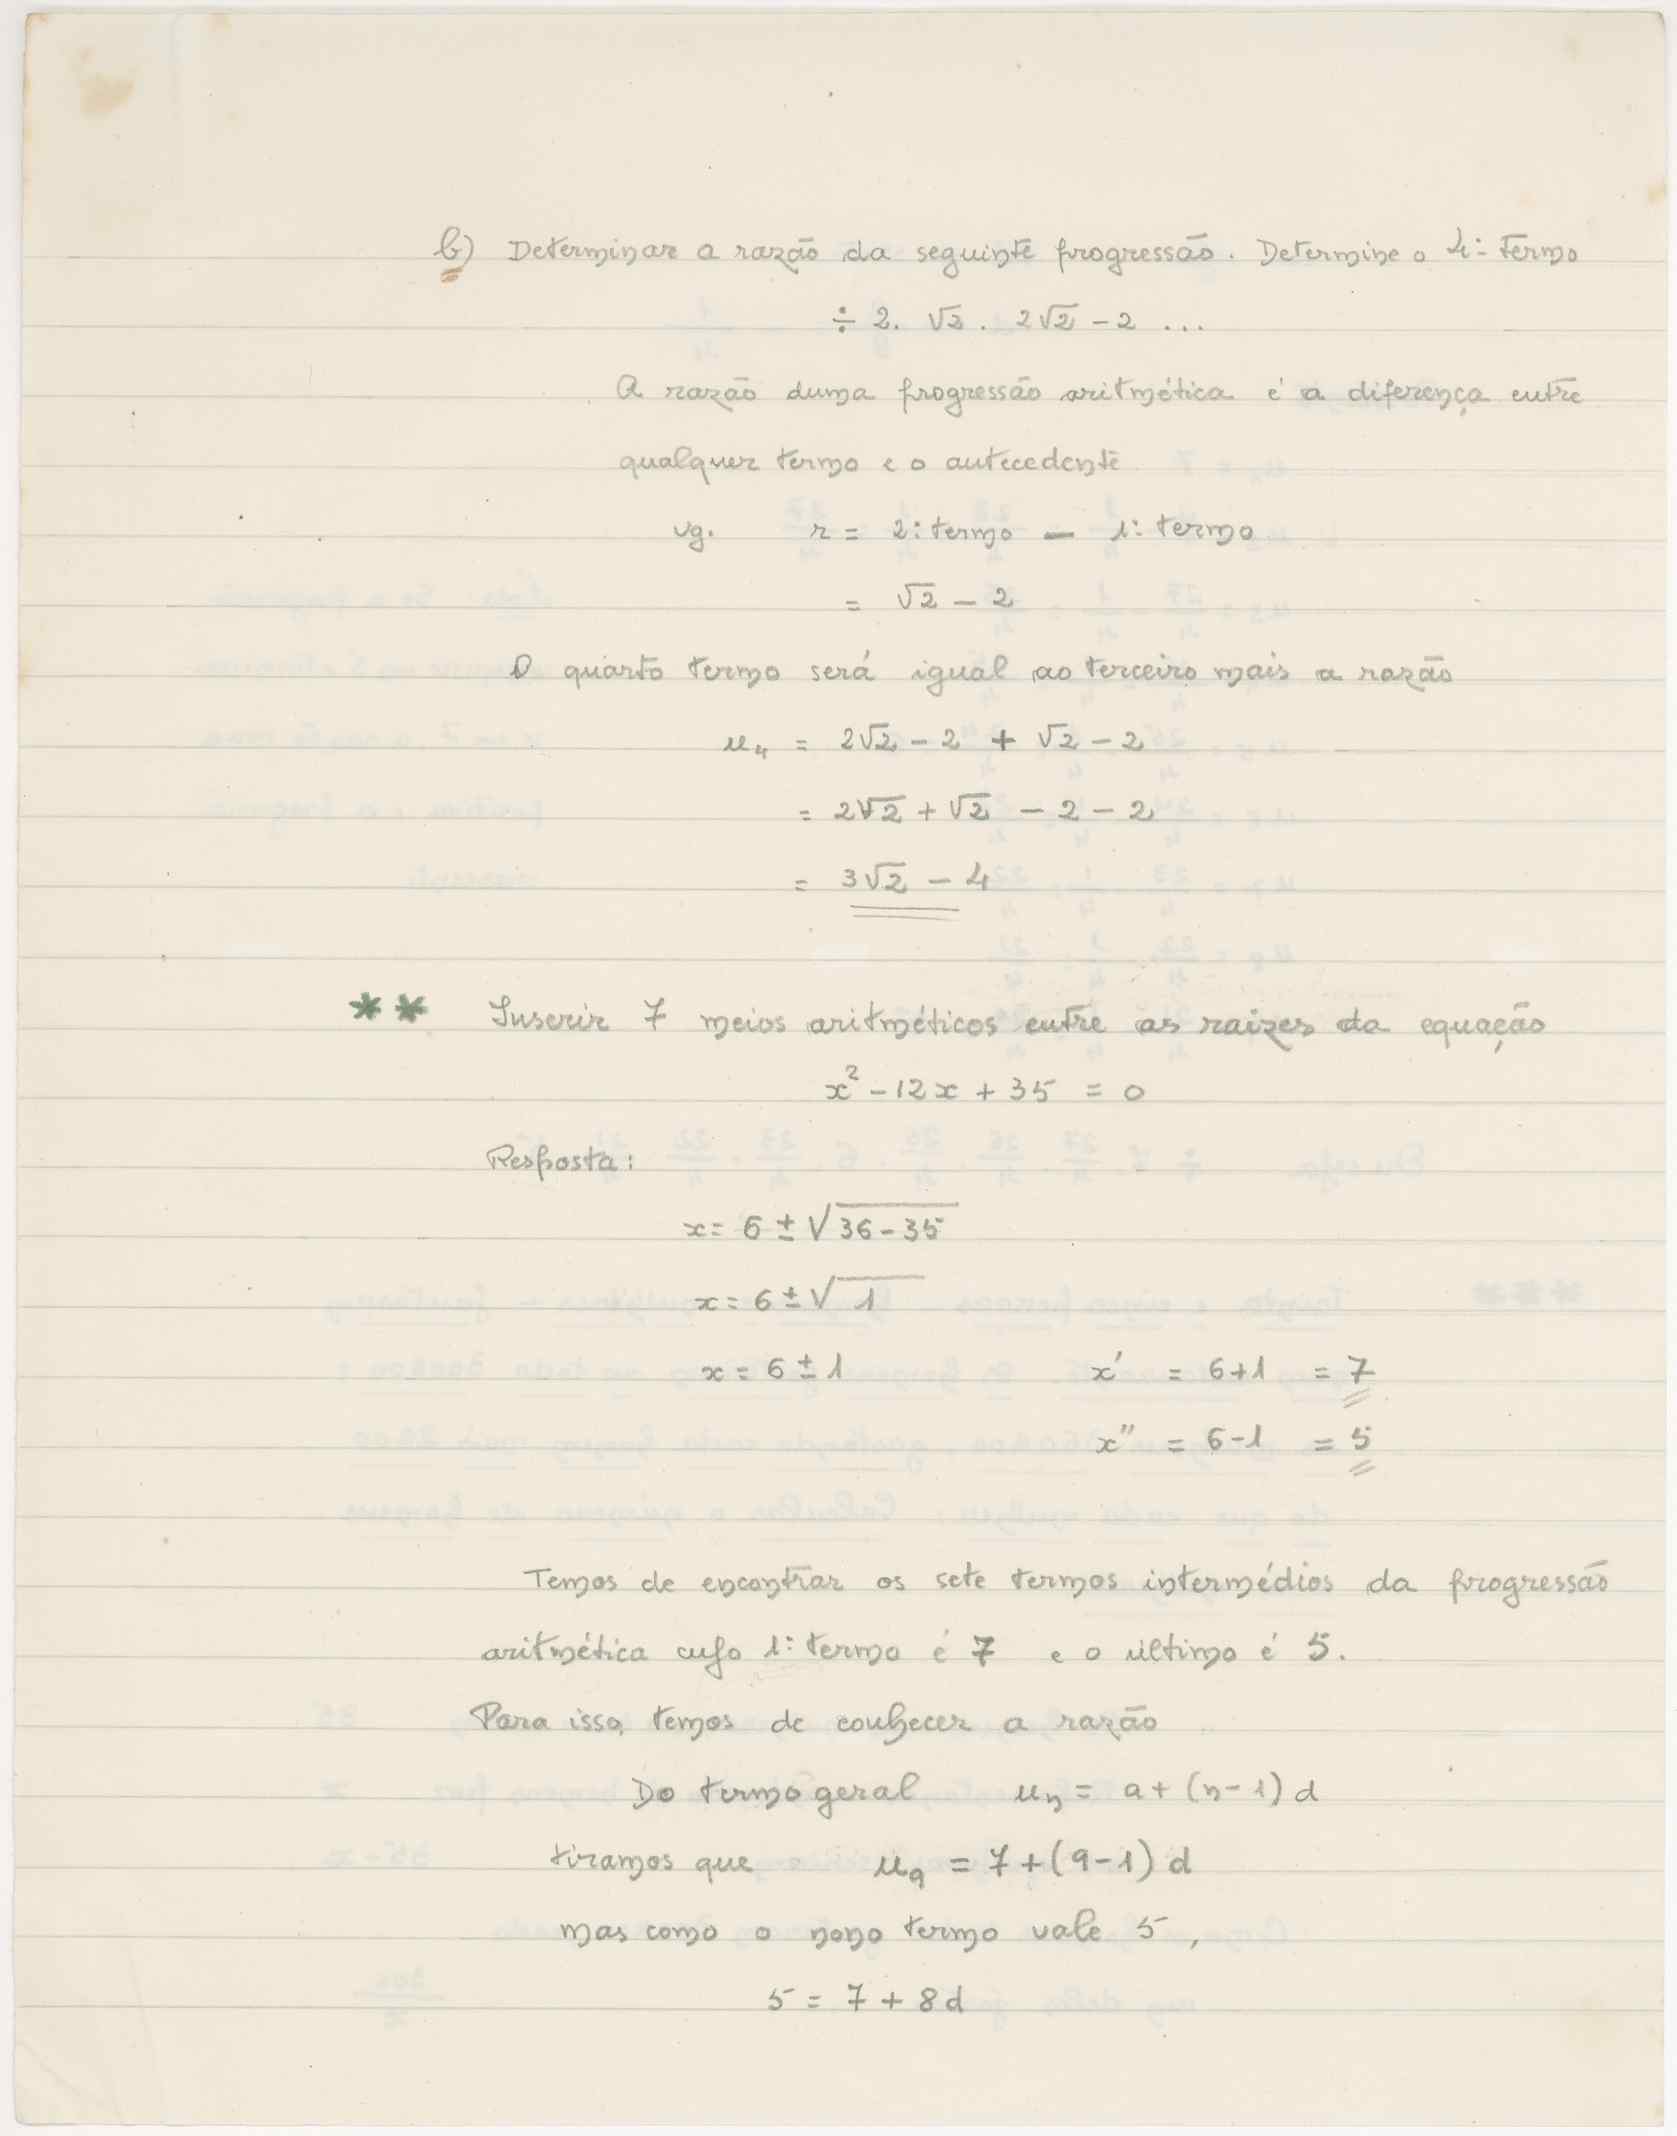 b) Determinar a razão da seguinte progressão. Determine o 4º termo
÷ 2. √2 . 2√2 - 2 ...
A razão duma progressão aritmética é a diferença entre
qualquer termo e o antecedente
vg. r = 2º termo - 1º termo
= √2 - 2
O quarto termo será igual ao terceiro mais a razão
u₄ = 2√2 - 2 + √2 - 2
= 2√2 + √2 - 2 - 2
= 3√2 - 4
** Inserir 7 meios aritméticos entre as raizes da equação
x² - 12x + 35 = 0
Resposta:
x = 6 ± √36-35
x = 6 ± √1
x = 6 ± 1 x' = 6+1 = 7
x'' = 6-1 = 5
Temos de encontrar os sete termos intermédios da progressão
aritmética cujo 1º termo é 7 e o último é 5.
Para isso, temos de conhecer a razão
Do termo geral uₙ = a + (n-1) d
tiramos que u₉ = 7 + (9-1) d
mas como o nono termo vale 5,
5 = 7 + 8d